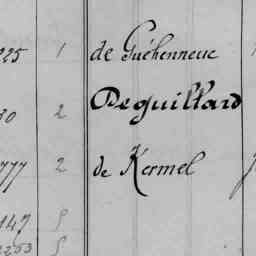 225 1 de Guéhenneuc
2 Deguillard
777 2 de Kermel
147
2253